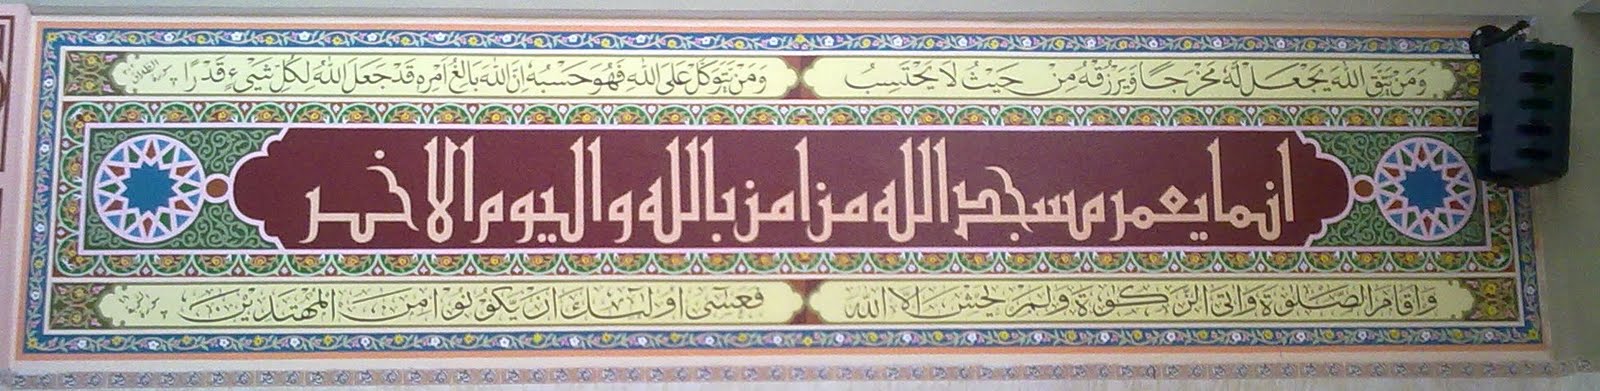 ومن يتق الله يجعل له مخرجا ويرزقه من حيث لا يحتسب ومن يتوكل على الله فهو حسبه إن الله بالغ أمره قد جعل الله لكل شيء قدرا
انما يعمر مسجد الله من امن بالله واليوم الاخر
واقام الصلوة واتى الزكوة ولم يخش الا الله فعسى اولئك ان يكونوا من المهتدين